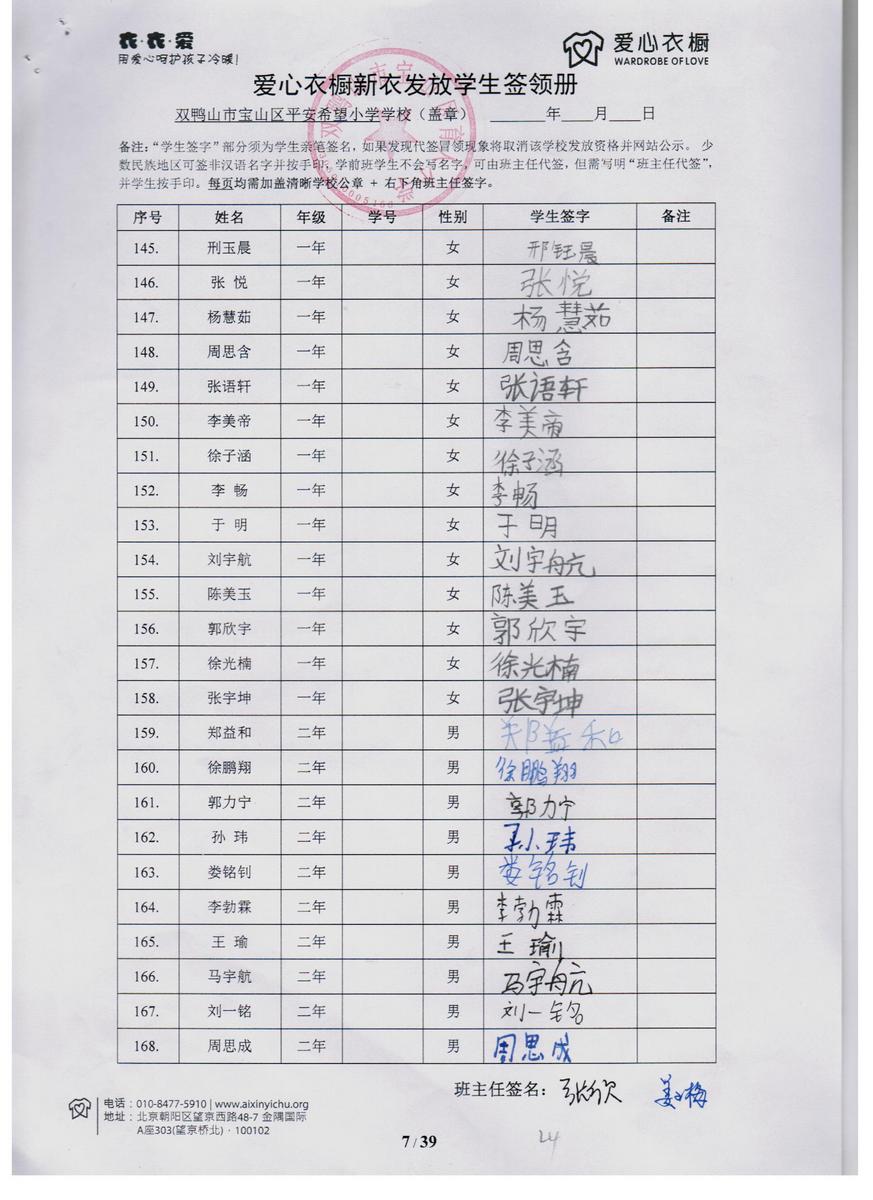 衣·衣·爱
用爱心呵护孩子冷暖！
爱心衣橱
WARDROBE OF LOVE
爱心衣橱新衣发放学生签领册
双鸭山市宝山区平安希望小学学校（盖章） ______年____月____日
备注：“学生签字”部分须为学生亲笔签名，如果发现代签冒领现象将取消该学校发放资格并网站公示。 少
数民族地区可签非汉语名字并按手印；学前班学生不会写名字，可由班主任代签，但需写明“班主任代签”，
并学生按手印。每页均需加盖清晰学校公章 + 右下角班主任签字。
序号 姓名 年级 学号 性别 学生签字 备注
145. 刑玉晨 一年 女 邢钰晨
146. 张 悦 一年 女 张悦
147. 杨慧茹 一年 女 杨慧茹
148. 周思含 一年 女 周思含
149. 张语轩 一年 女 张语轩
150. 李美帝 一年 女 李美帝
151. 徐子涵 一年 女 徐子涵
152. 李 畅 一年 女 李畅
153. 于 明 一年 女 于明
154. 刘宇航 一年 女 刘宇航
155. 陈美玉 一年 女 陈美玉
156. 郭欣宇 一年 女 郭欣宇
157. 徐光楠 一年 女 徐光楠
158. 张宇坤 一年 女 张宇坤
159. 郑益和 二年 男 郑益和
160. 徐鹏翔 二年 男 徐鹏翔
161. 郭力宁 二年 男 郭力宁
162. 孙 玮 二年 男 孙玮
163. 娄铭钊 二年 男 娄铭钊
164. 李勃霖 二年 男 李勃霖
165. 王 瑜 二年 男 王瑜
166. 马宇航 二年 男 马宇航
167. 刘一铭 二年 男 刘一铭
168. 周思成 二年 男 周思成
班主任签名：张欣 姜小梅
电话：010-8477-5910 | www.aixinyichu.org
地址：北京朝阳区望京西路48-7 金隅国际
A座303(望京桥北) · 100102
7 / 39
24